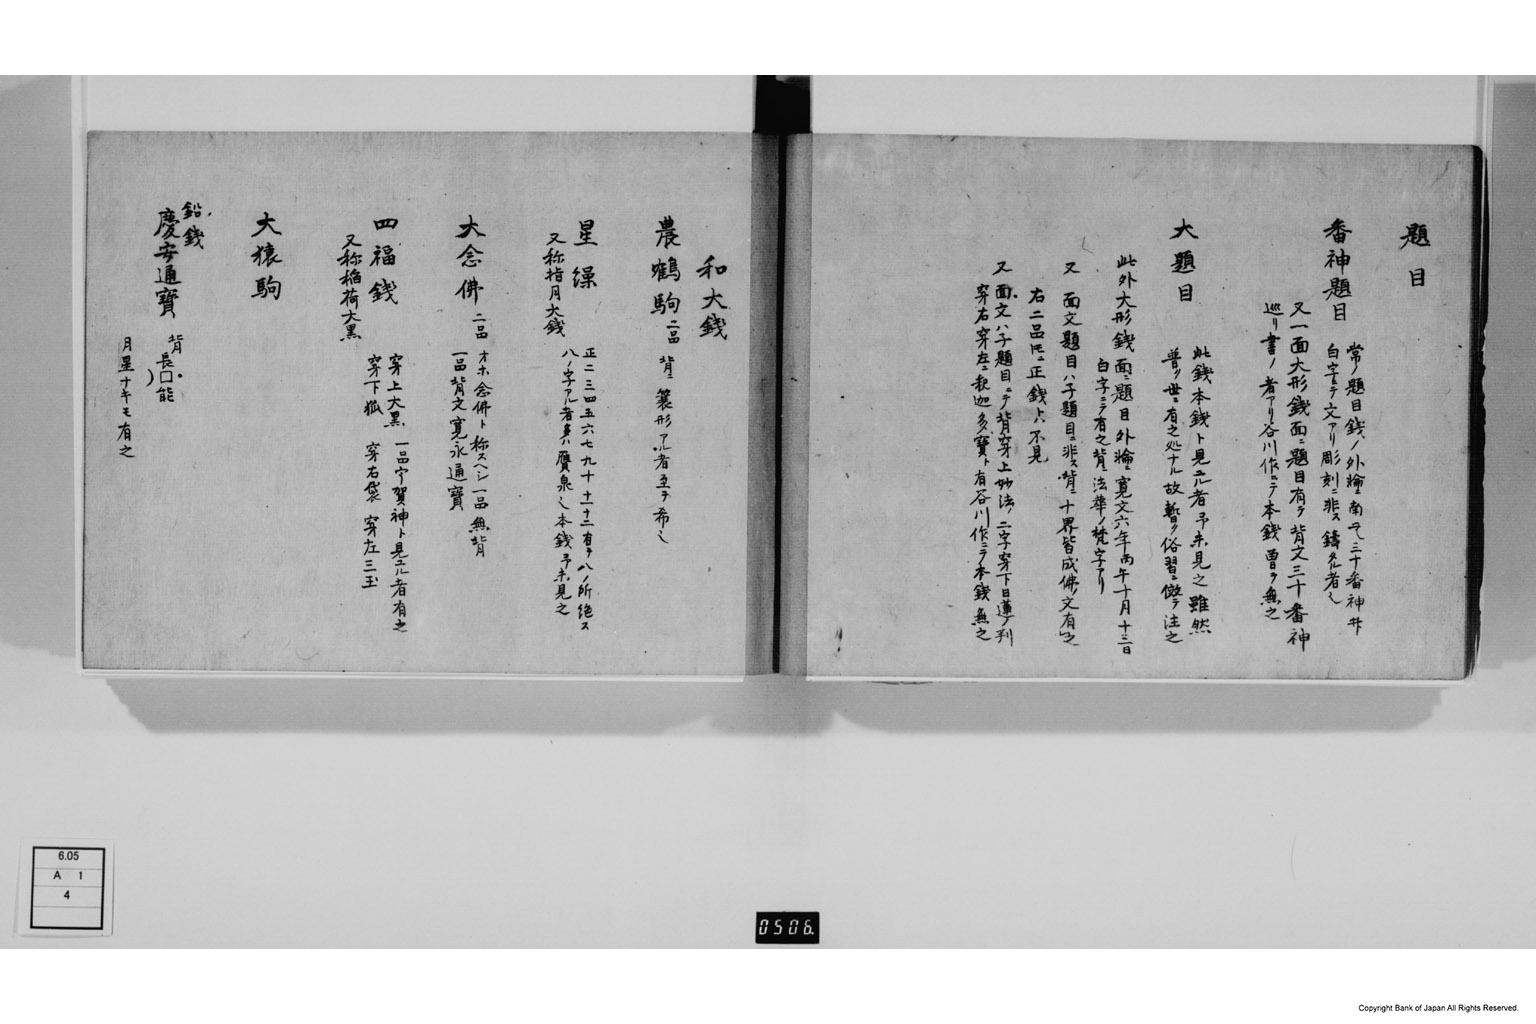 題目
番神題目
常ノ題目銭ノ外輪ニ南无三十番神ト
白字ニテ文アリ彫刻ニ非ス鋳タル者也
又一面大形銭面ニ題目有テ背文三十番神
巡リ書ノ者アリ谷川作ニテ本銭曽テ無之
大題目
此銭本銭ト見エル者予未見之雖然
普ク世ニ有之処ナル故暫ク俗習ニ倣テ注之
此外大形銭面ニ題目外輪ニ寛文六年丙午十月十三日
白字ニテ有之背法華ノ梵字アリ
又 面文題目ハ子題目ニ非ス背ニ十界皆成佛ノ文有之
右二品トモニ正銭トハ不見
又 面文ハ子題目ニテ背穿上妙法ノ二字穿下日蓮ノ判
穿右穿左ニ釈迦多寶ト有谷川作ニテ本銭無之
和大銭
農鶴駒 二品 背ニ簑形アル者至テ希也
星繰
正二三四五六七九十十一十二有テ八ノ所絶ス
又称指月大銭
八ノ字アル者多ハ贋泉也本銭予未見之
大念佛 二品
オホ念佛ト称スヘシ一品無背
一品背文寛永通寳
四福銭
穿上大黒 一品宇賀神ト見エル者有之
又称稲荷大黒
穿下狐 穿右袋 穿左三玉
大猿駒
鉛銭
慶安通寳 背
長口能
月星ナキモ有之
6.05
A 1
4
0506
Copyright Bank of Japan All Rights Reserved.